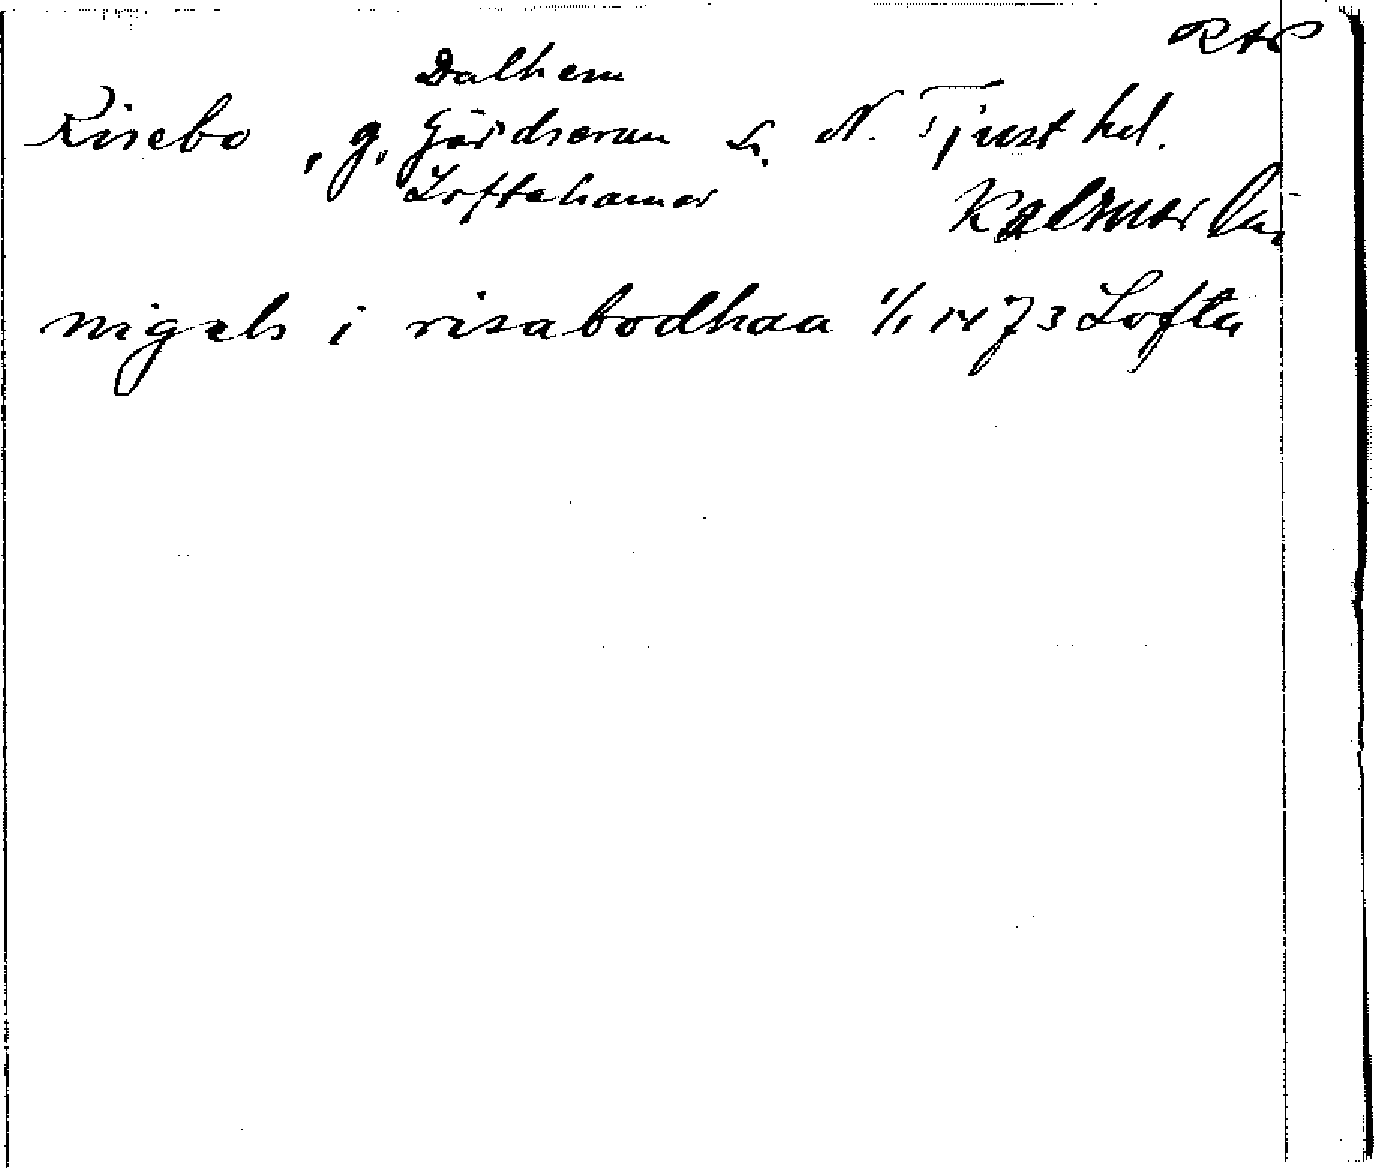 RAP
Dalhem
Risebo, g, Gärdserum s. N. Tjust hd.
Loftahamar
Kalmar län
nigels i risabodhaa 1/1 1473 Lofta